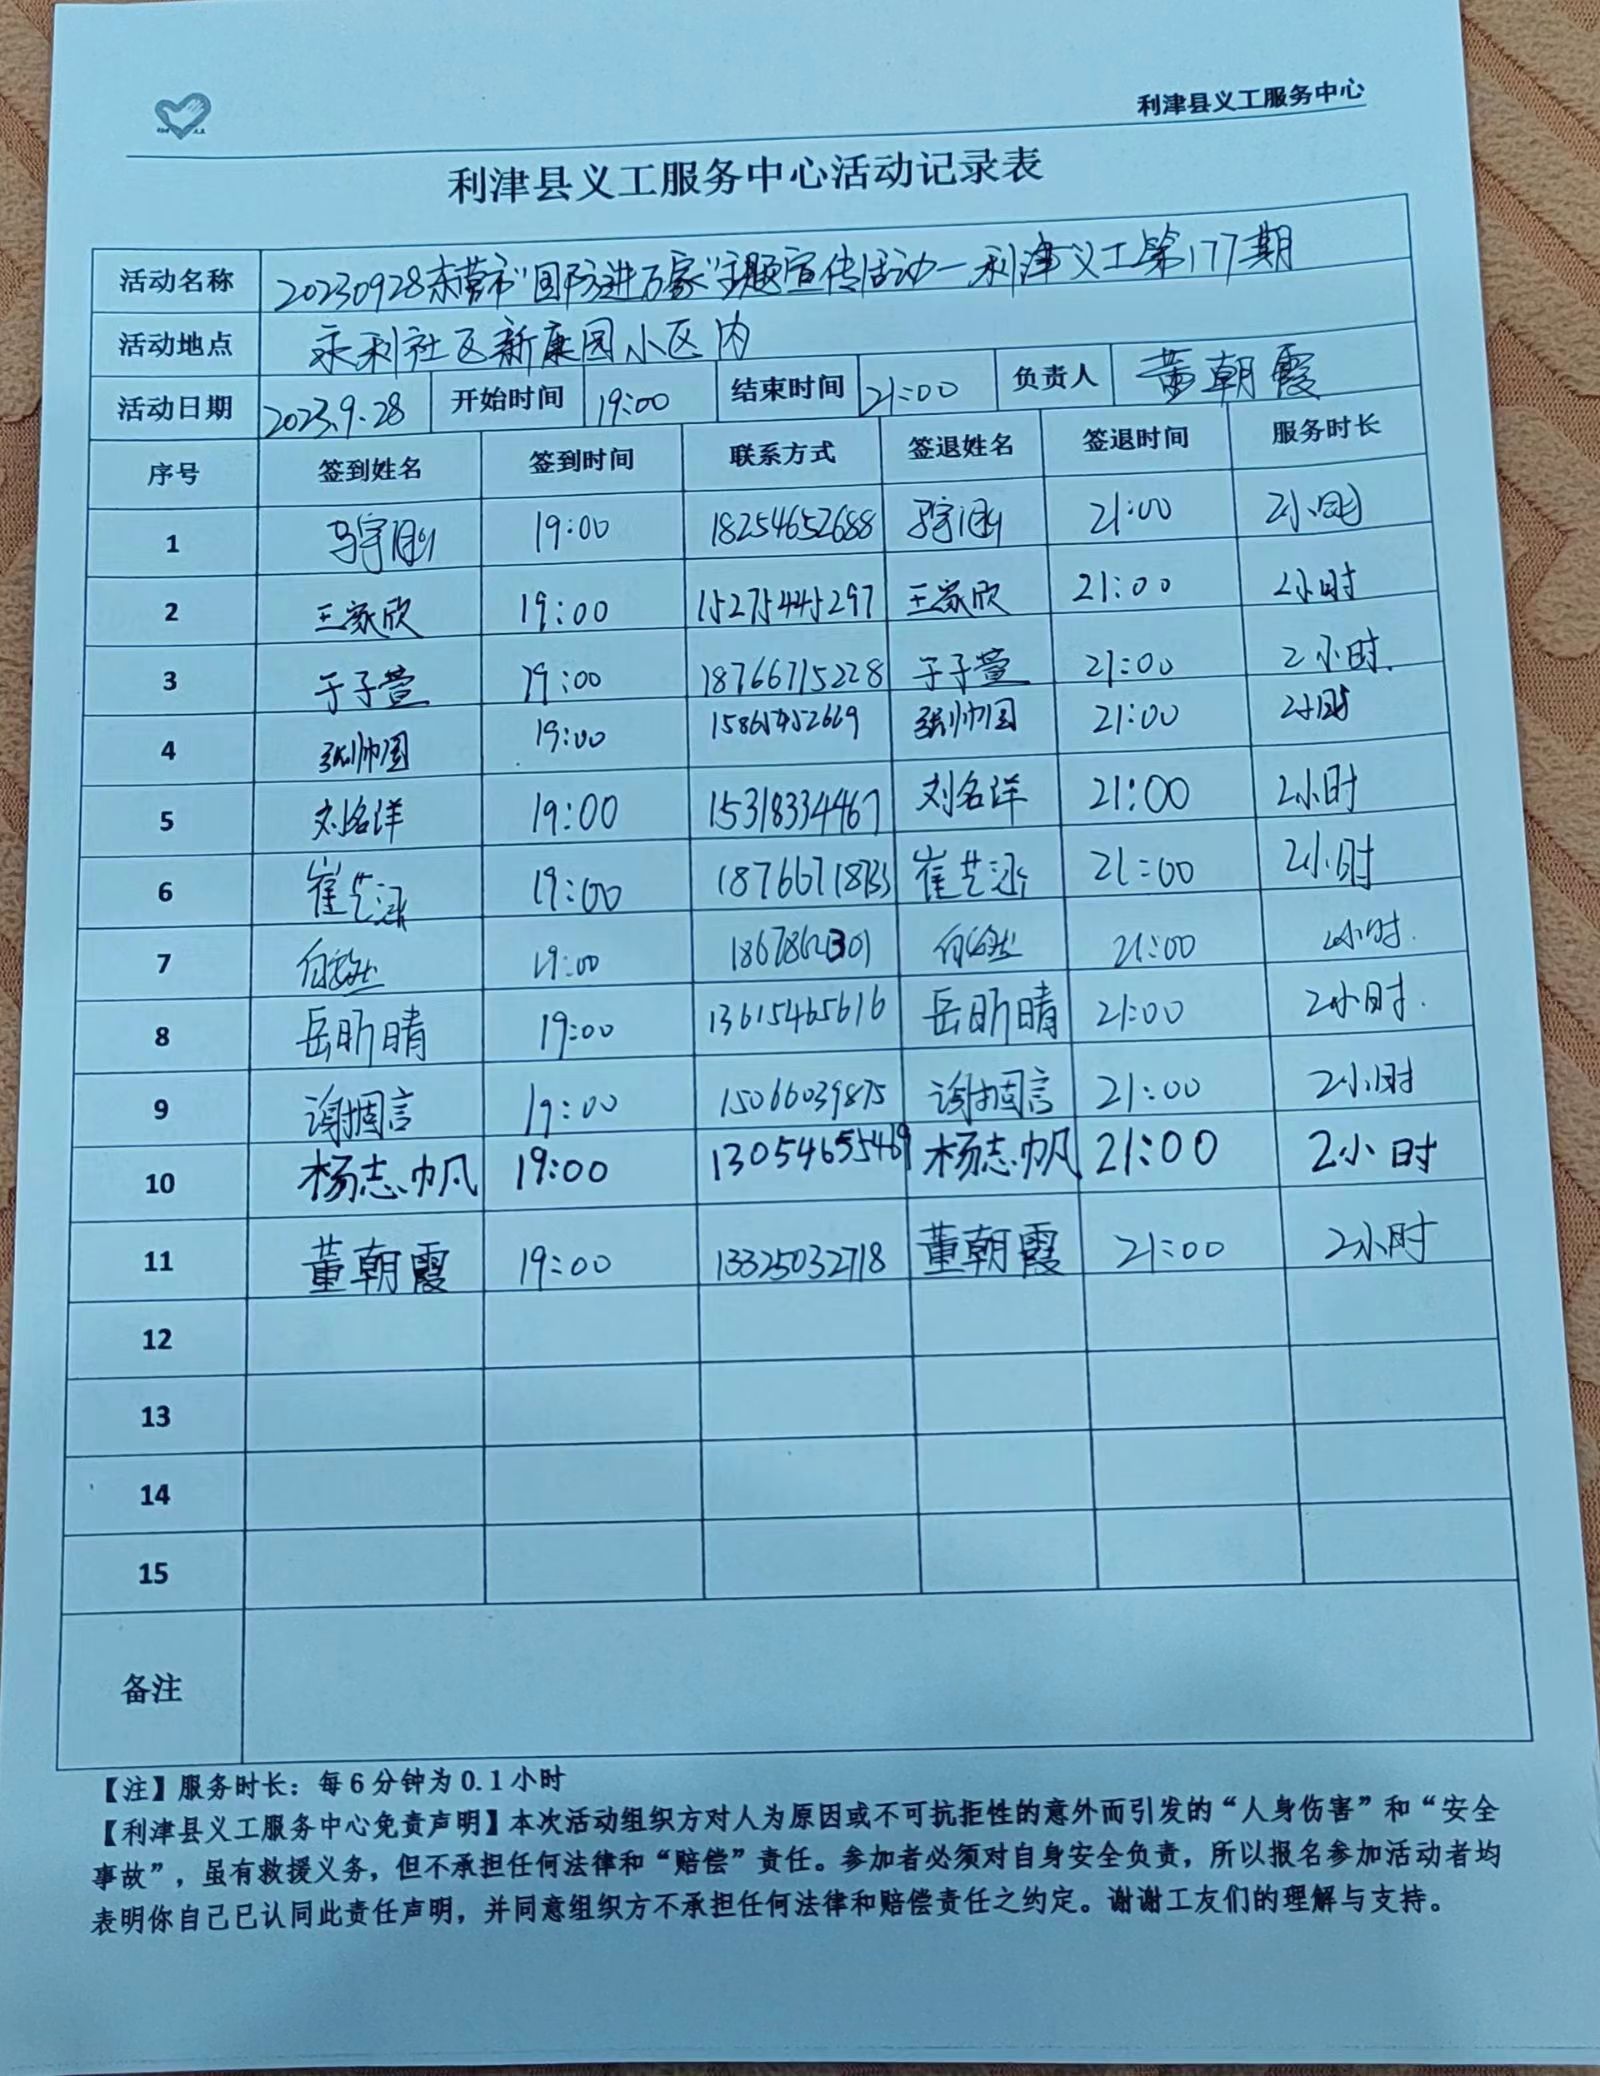 利津县义工服务中心
利津县义工服务中心活动记录表
活动名称 20230928东营市“国防进万家”主题宣传活动—利津义工第177期
活动地点 永利社区新康园小区内
活动日期 2023.9.28 开始时间 19:00 结束时间 21:00 负责人 董朝霞
序号 签到姓名 签到时间 联系方式 签退姓名 签退时间 服务时长
1 19:00 18254652688 21:00 2小时
2 王家欣 19:00 15275445297 王家欣 21:00 2小时
3 于子萱 19:00 18766715228 于子萱 21:00 2小时.
4 张帅国 19:00 张帅国 21:00 2小时
5 刘名洋 19:00 15318334467 刘名洋 21:00 2小时
6 崔艺泳 19:00 崔艺泳 21:00 2小时
7 19:00 21:00 2小时.
8 岳昕晴 19:00 13615465616 岳昕晴 21:00 2小时.
9 19:00 15066039875 21:00 2小时
10 杨志帆 19:00 13054655469 杨志帆 21:00 2小时
11 董朝霞 19:00 13325032718 董朝霞 21:00 2小时
12
13
14
15
备注
【注】服务时长：每6分钟为0.1小时
【利津县义工服务中心免责声明】本次活动组织方对人为原因或不可抗拒性的意外而引发的“人身伤害”和“安全
事故”，虽有救援义务，但不承担任何法律和“赔偿”责任。参加者必须对自身安全负责，所以报名参加活动者均
表明你自己已认同此责任声明，并同意组织方不承担任何法律和赔偿责任之约定。谢谢工友们的理解与支持。